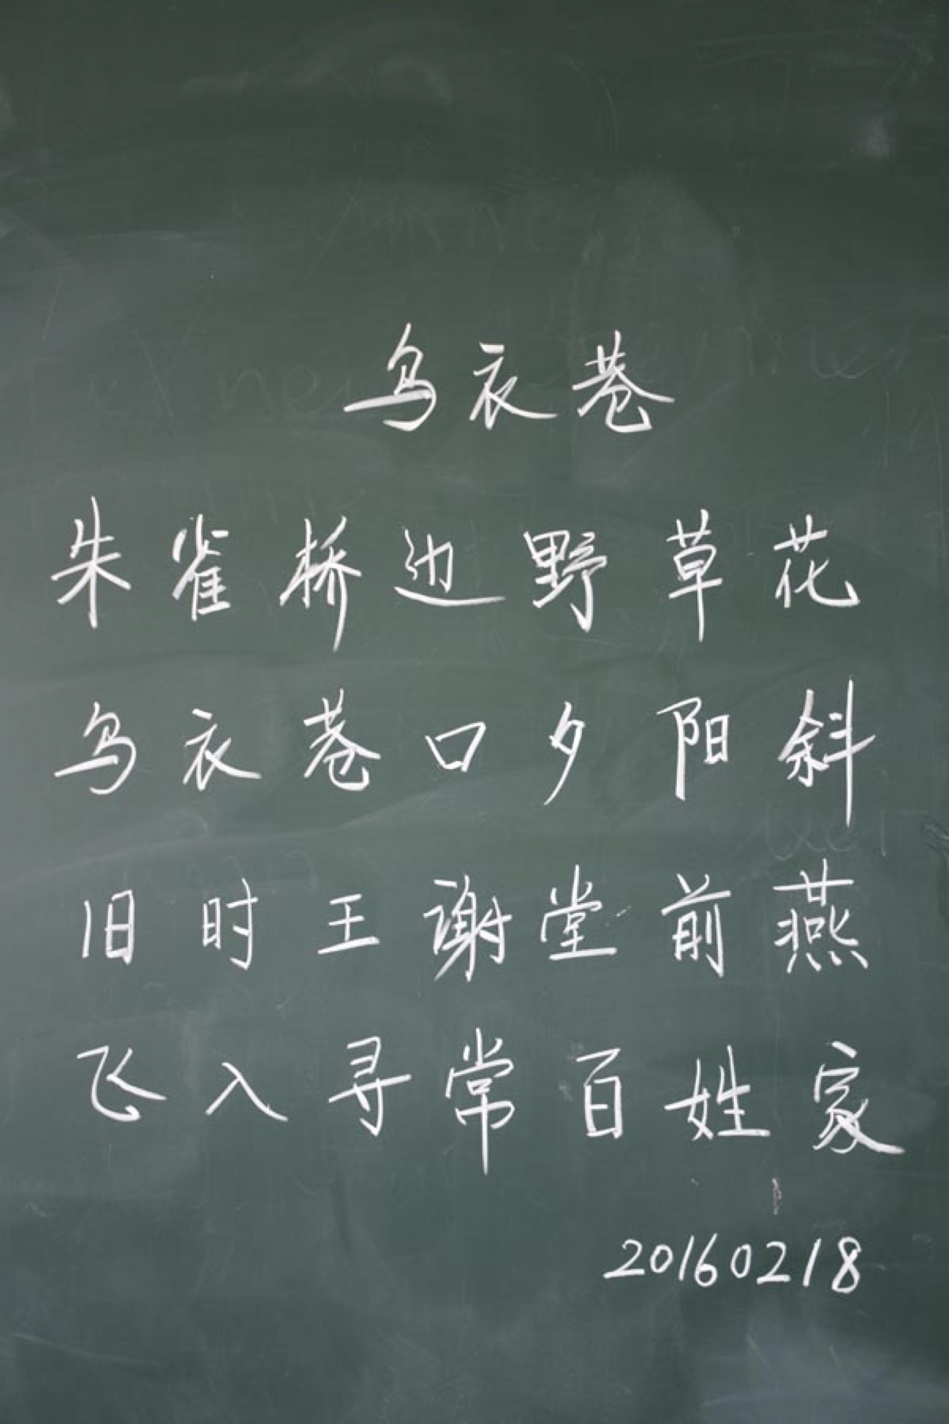 乌衣巷
朱雀桥边野草花
乌衣巷口夕阳斜
旧时王谢堂前燕
飞入寻常百姓家
20160218